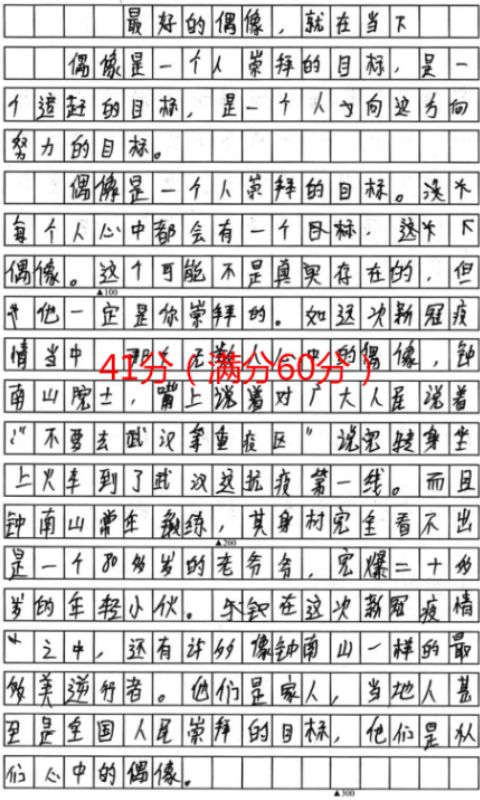 最好的偶像，就在当下
偶像是一个人崇拜的目标，是一
个追赶的目标，是一个人 向这方向
努力的目标。
偶像是一个人崇拜的目标。
每个人心中都会有一个目标，这
偶像。这个可能不是真实存在的，但
▲100
他一定是你崇拜的。如这次新冠疫
情当中 中的偶像，钟
41分（满分60分）
南山院士，嘴上说着对广大人民说着
“不要去武汉拿重疫区”说完转身坐
上火车到了武汉这抗疫第一线。而且
钟南山常年锻练，其身材完全看不出
▲200
是一个80多岁的老爷爷，完爆二十多
岁的年轻小伙。 在这次新冠疫情
之中，还有许多像钟南山一样的最
多美逆行者。他们是家人，当地人甚
至是全国人民崇拜的目标，他们是从
们心中的偶像。
▲300